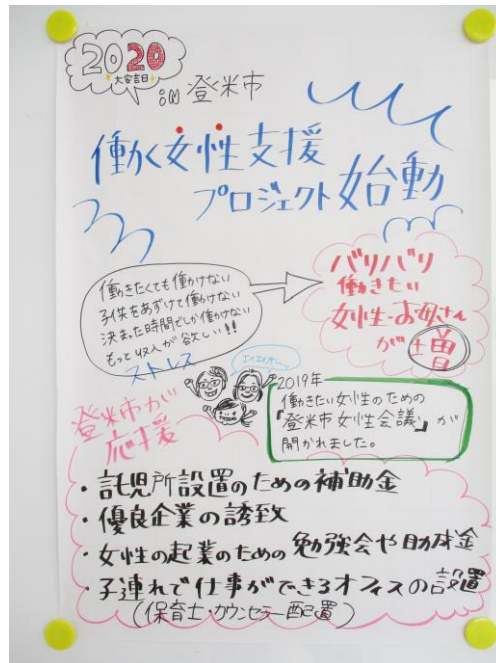 2020
大安吉日
in 登米市
働く女性支援
プロジェクト始動
働きたくても働けない
子供をあずけて働けない
決まった時間でしか働けない
もっと収入が欲しい!!
ストレス
バリバリ
働きたい
女性・お母さん
が +増
エイエイオーッ
2019年
働きたい女性のための
『登米市女性会議』が
開かれました。
登米市が
応援
・託児所設置のための補助金
・優良企業の誘致
・女性の起業のための勉強会や助成金
・子連れで仕事ができるオフィスの設置
(保育士・カウンセラー配置)